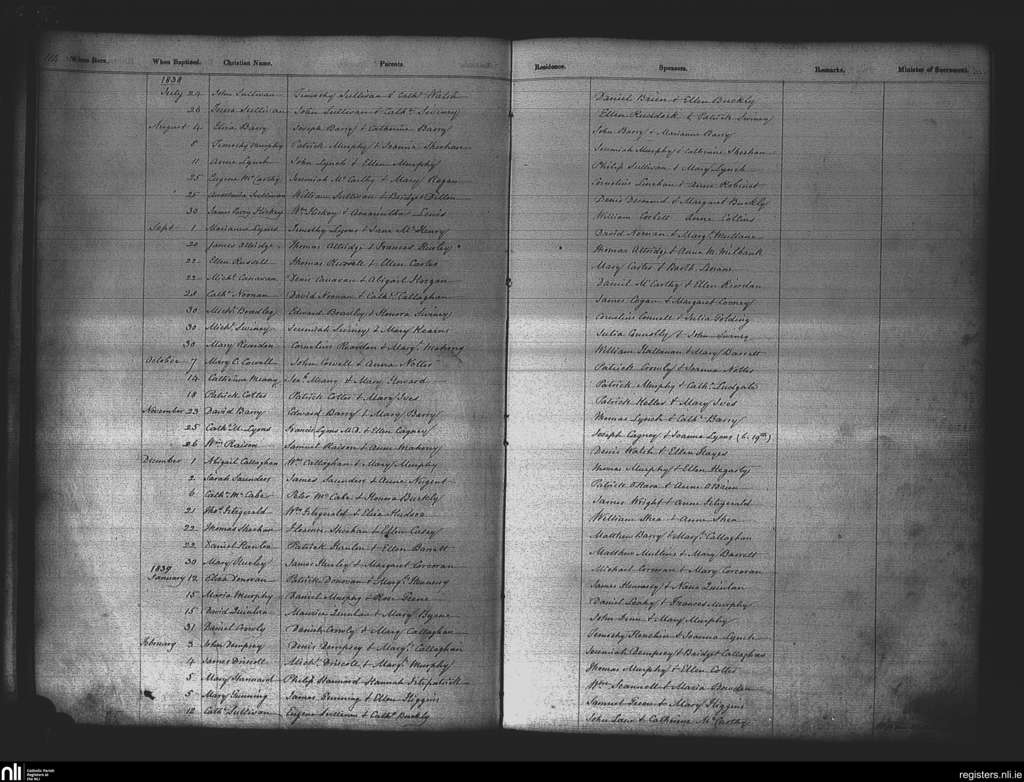 When Born. When Baptized. Christian Name. Parents. Residence. Sponsors. Remarks. Minister of Sacrament.
1838
July 24 John Sullivan Timothy Sullivan & Cathe. Walsh Daniel Brien & Ellen Buckly
26 Sullivan John Sullivan & Cathe. Swiney Ellen & Patrick Swiney
August 4 Eliza Barry Joseph Barry & Catherine Barry John Barry & Marianne Barry
8 Timothy Murphy Patrick Murphy & Joanna Sheehan Jeremiah Murphy & Catherine Sheehan
11 Anne Lynch John Lynch & Ellen Murphy Philip Sullivan & Mary Lynch
25 Eugene McCarthy Jeremiah McCarthy & Mary Regan Cornelius Linehan & Anne
25 Sullivan William Sullivan & Bridget Dillon Denis Desmond & Margaret Buckly
30 James Hickey Wm. Hickey & Lewis William Corbett Anne Collins
Sept. 1 Marianne Lyons Timothy Lyons & Jane McHenry David Noonan & Margt. Mullane
20 James Thomas & Frances Hurley Thomas & Anne M. Milbank
22 Ellen Russell Thomas Russell & Ellen Cotter Mary Cotter & Barth.
22 Michl. Canavan Denis Canavan & Abigail Horgan Daniel McCarthy & Ellen Riordan
28 Cathe. Noonan David Noonan & Cathe. Callaghan James Cogan & Margaret Looney
30 Michl. Bradley Edward Bradley & Honora Swiney Cornelius Connell & Julia Golding
30 Michl. Swiney Jeremiah Swiney & Mary Kearns Julia Connolly & John Swiney
30 Mary Reardon Cornelius Reardon & Margt. Mahony William Hallanan & Mary Barrett
October 7 Mary C. Cowell John Cowell & Anna Notter Patrick Crowly & Joanna Notter
14 Catherine Meany & Mary Howard Patrick Murphy & Cathe. Ludgate
18 Patrick Cotter Patrick Cotter & Mary Ives Patrick Cotter & Mary Ives
November 23 David Barry Edward Barry & Mary Barry Thomas Lynch & Cathe. Barry
25 Cathe. M. Lyons Francis Lyons M.D. & Ellen Cagney Joseph Cagney & Joanna Lyons (b. 19th)
26 Wm. Raison Samuel Raison & Anne Mahony Denis Walsh & Ellen Hayes
December 1 Abigail Callaghan Wm. Callaghan & Mary Murphy Thomas Murphy & Ellen Hegarty
2 Sarah Saunders James Saunders & Anne Nugent Patrick O'Hara & Anne O'Brien
6 Cathe. McCabe Peter McCabe & Honora Buckly James Wright & Anne Fitzgerald
21 Thos. Fitzgerald Wm. Fitzgerald & Eliza Hudson William Shea & Anne Shea
22 Thomas Sheehan Florence Sheehan & Ellen Casey Matthew Barry & Mary Callaghan
22 Daniel Hanlon Patrick Hanlon & Ellen Barrett Matthew Mullins & Mary Barrett
30 Mary Hurley James Hurley & Margaret Corcoran Michael Corcoran & Mary Corcoran
1839
January 12 Eliza Donovan Patrick Donovan & Margt. Hennessy James Hennessy & Nora Quinlan
15 Maria Murphy Daniel Murphy & Rose Daniel Leahy & Frances Murphy
15 David Quinlan Maurice Quinlan & Mary Byrne John & Mary Murphy
31 Daniel Crowly Daniel Crowly & Mary Callaghan Timothy & Joanna Lynch
February 3 John Dempsey Denis Dempsey & Margt. Callaghan Jeremiah Dempsey & Bridget Callaghan
4 James Driscoll Michl. Driscoll & Margt. Murphy Thomas Murphy & Ellen Cotter
5 Mary Stannard Philip Stannard Hannah Fitzpatrick Wm. Scannell & Maria
5 Mary Gunning James Gunning & Ellen Higgins Samuel & Mary Higgins
12 Cathe. Sullivan Eugene Sullivan & Cathe. Buckly John Lane & Catherine McCarthy
nli Catholic Parish Registers at the NLI
registers.nli.ie